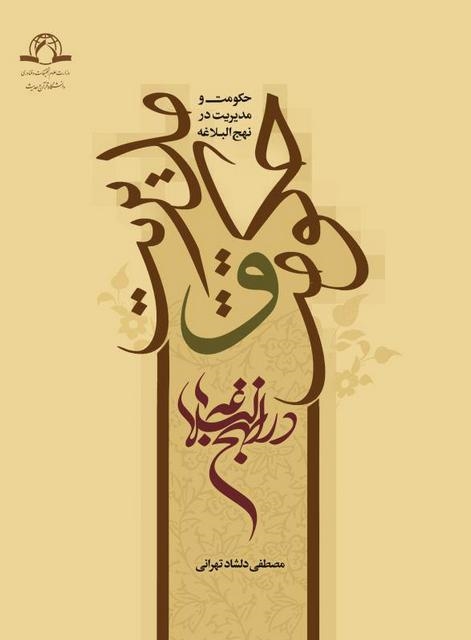 وزارت علوم، تحقیقات و فناوری
دانشگاه قرآن و حدیث
حکومت و
مدیریت در
نهج البلاغه
حکومت و مدیریت
در نهج البلاغه
مصطفی دلشاد تهرانی